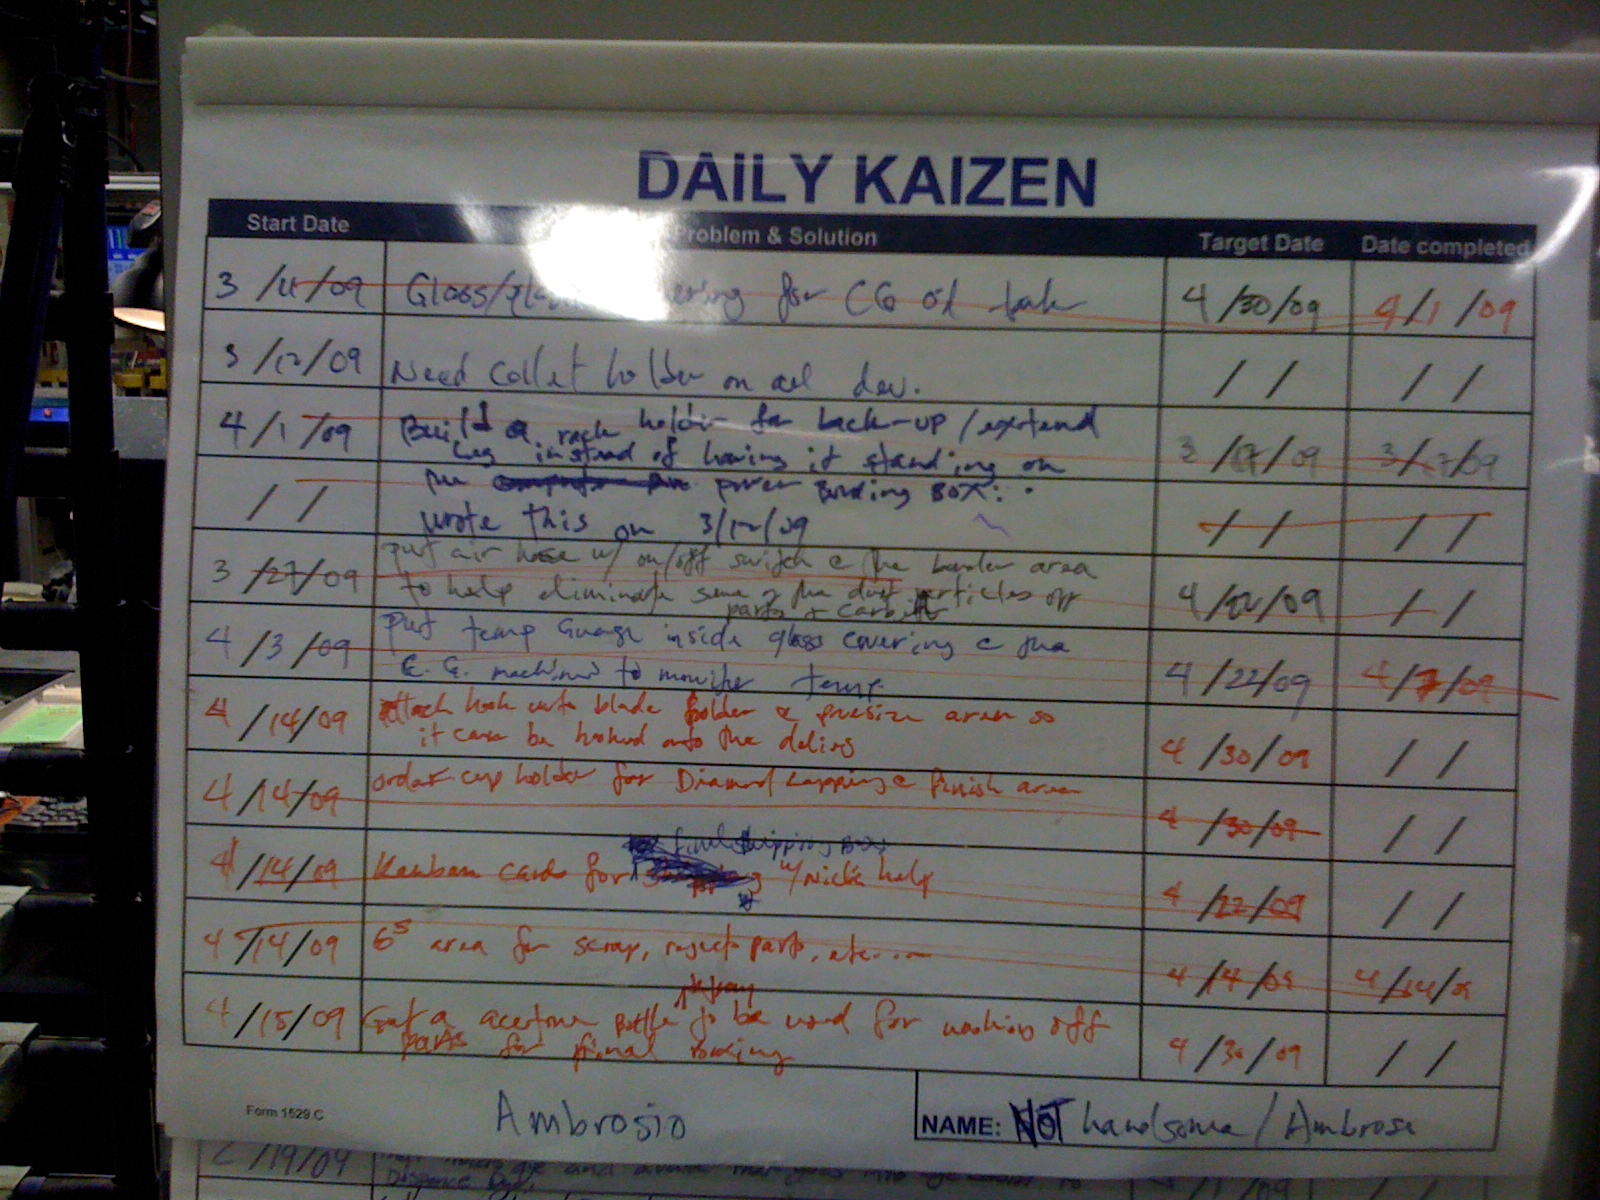 DAILY KAIZEN
Start Date Problem & Solution Target Date Date completed
3 / /09 Glass/ for CG oil tank 4/30/09 4/1/09
3/12/09 Need collet holder on all dev. / / / /
4/1/09 Build a rack holder for back-up/extend
Leg instead of having it standing on 3/17/09 3/17/09
/ / the power Bonding Box.
wrote this on 3/12/09 / / / /
3/27/09 put air hose w/ on/off switch @ the area
to help eliminate some of the dust particles off 4/22/09 / /
parts +
4/3/09 Put temp Guage inside glass covering @ the
machines to moniter temp. 4/22/09 4/7/09
4/14/09 Attach hook onto blade holder @ area so
it can be hooked onto the 4/30/09 / /
4/14/09 order cup holder for Diamond Lapping @ finish area 4/30/09 / /
final shipping Box
4/14/09 Kanban cards for w/Nick's help 4/22/09 / /
4/14/09 6S area for scrap, reject parts, etc.... 4/14/09 4/14/09
4/15/09 Get a acetone Bottle to be used for washing off
parts for final 4/30/09 / /
Form 1529 C Ambrosio NAME: NOT handsome/Ambrose
/19/09 and
Dispence